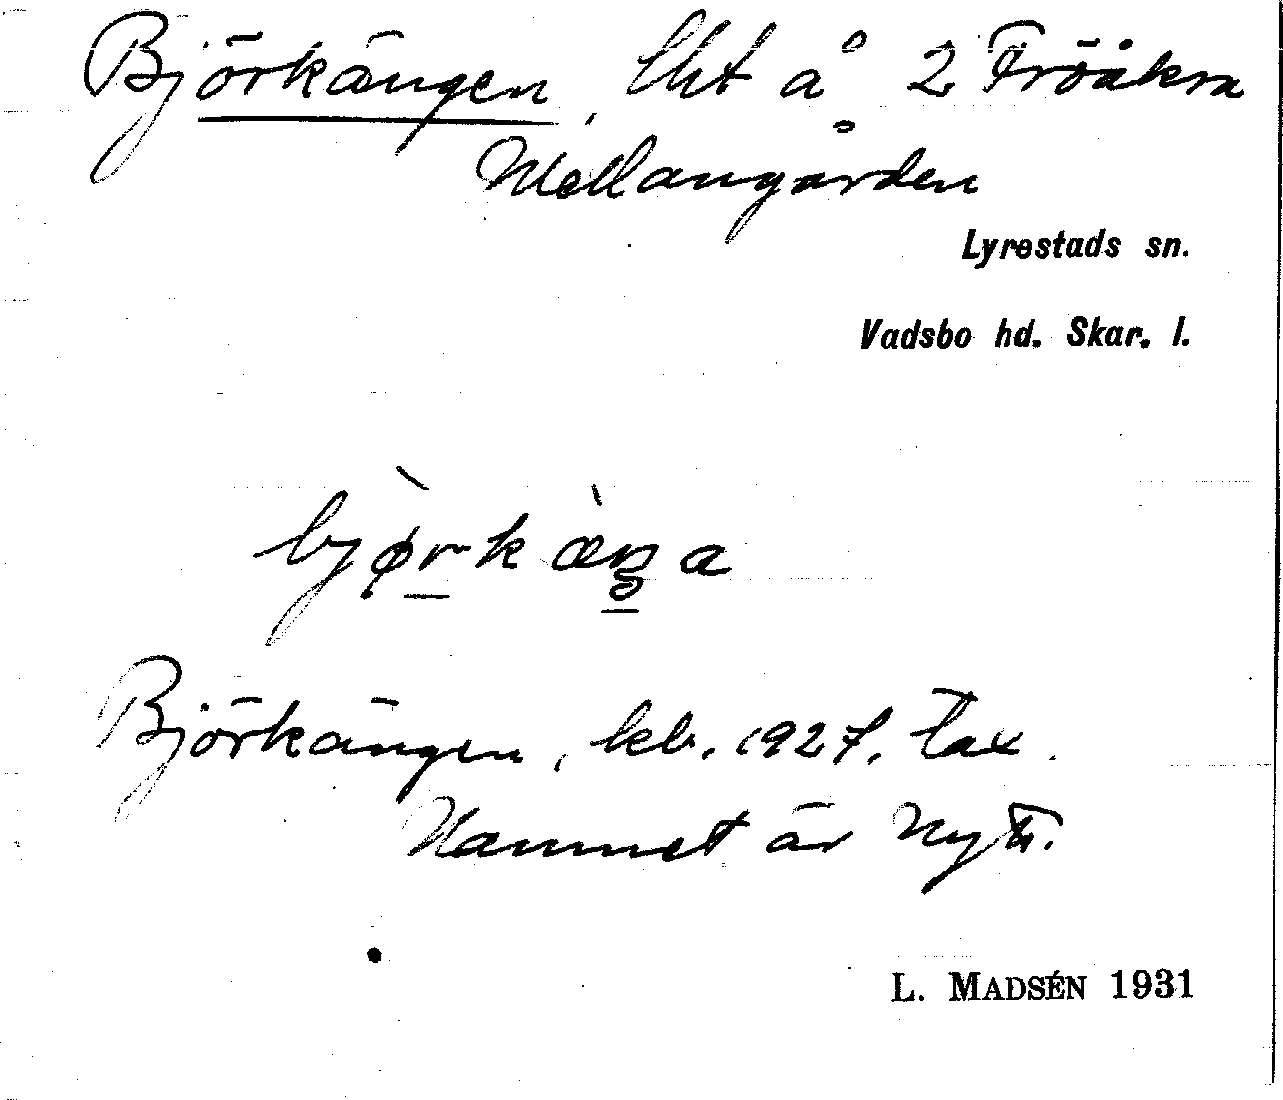 Björkängen, lht å 2 Fröåkra
Mellangården
Lyrestads sn.
Vadsbo hd. Skar. l.
bjø̀rkæ̀ŋa
Björkängen, kb. 1927, Tax.
Namnet är nytt.
L. MADSÉN 1931